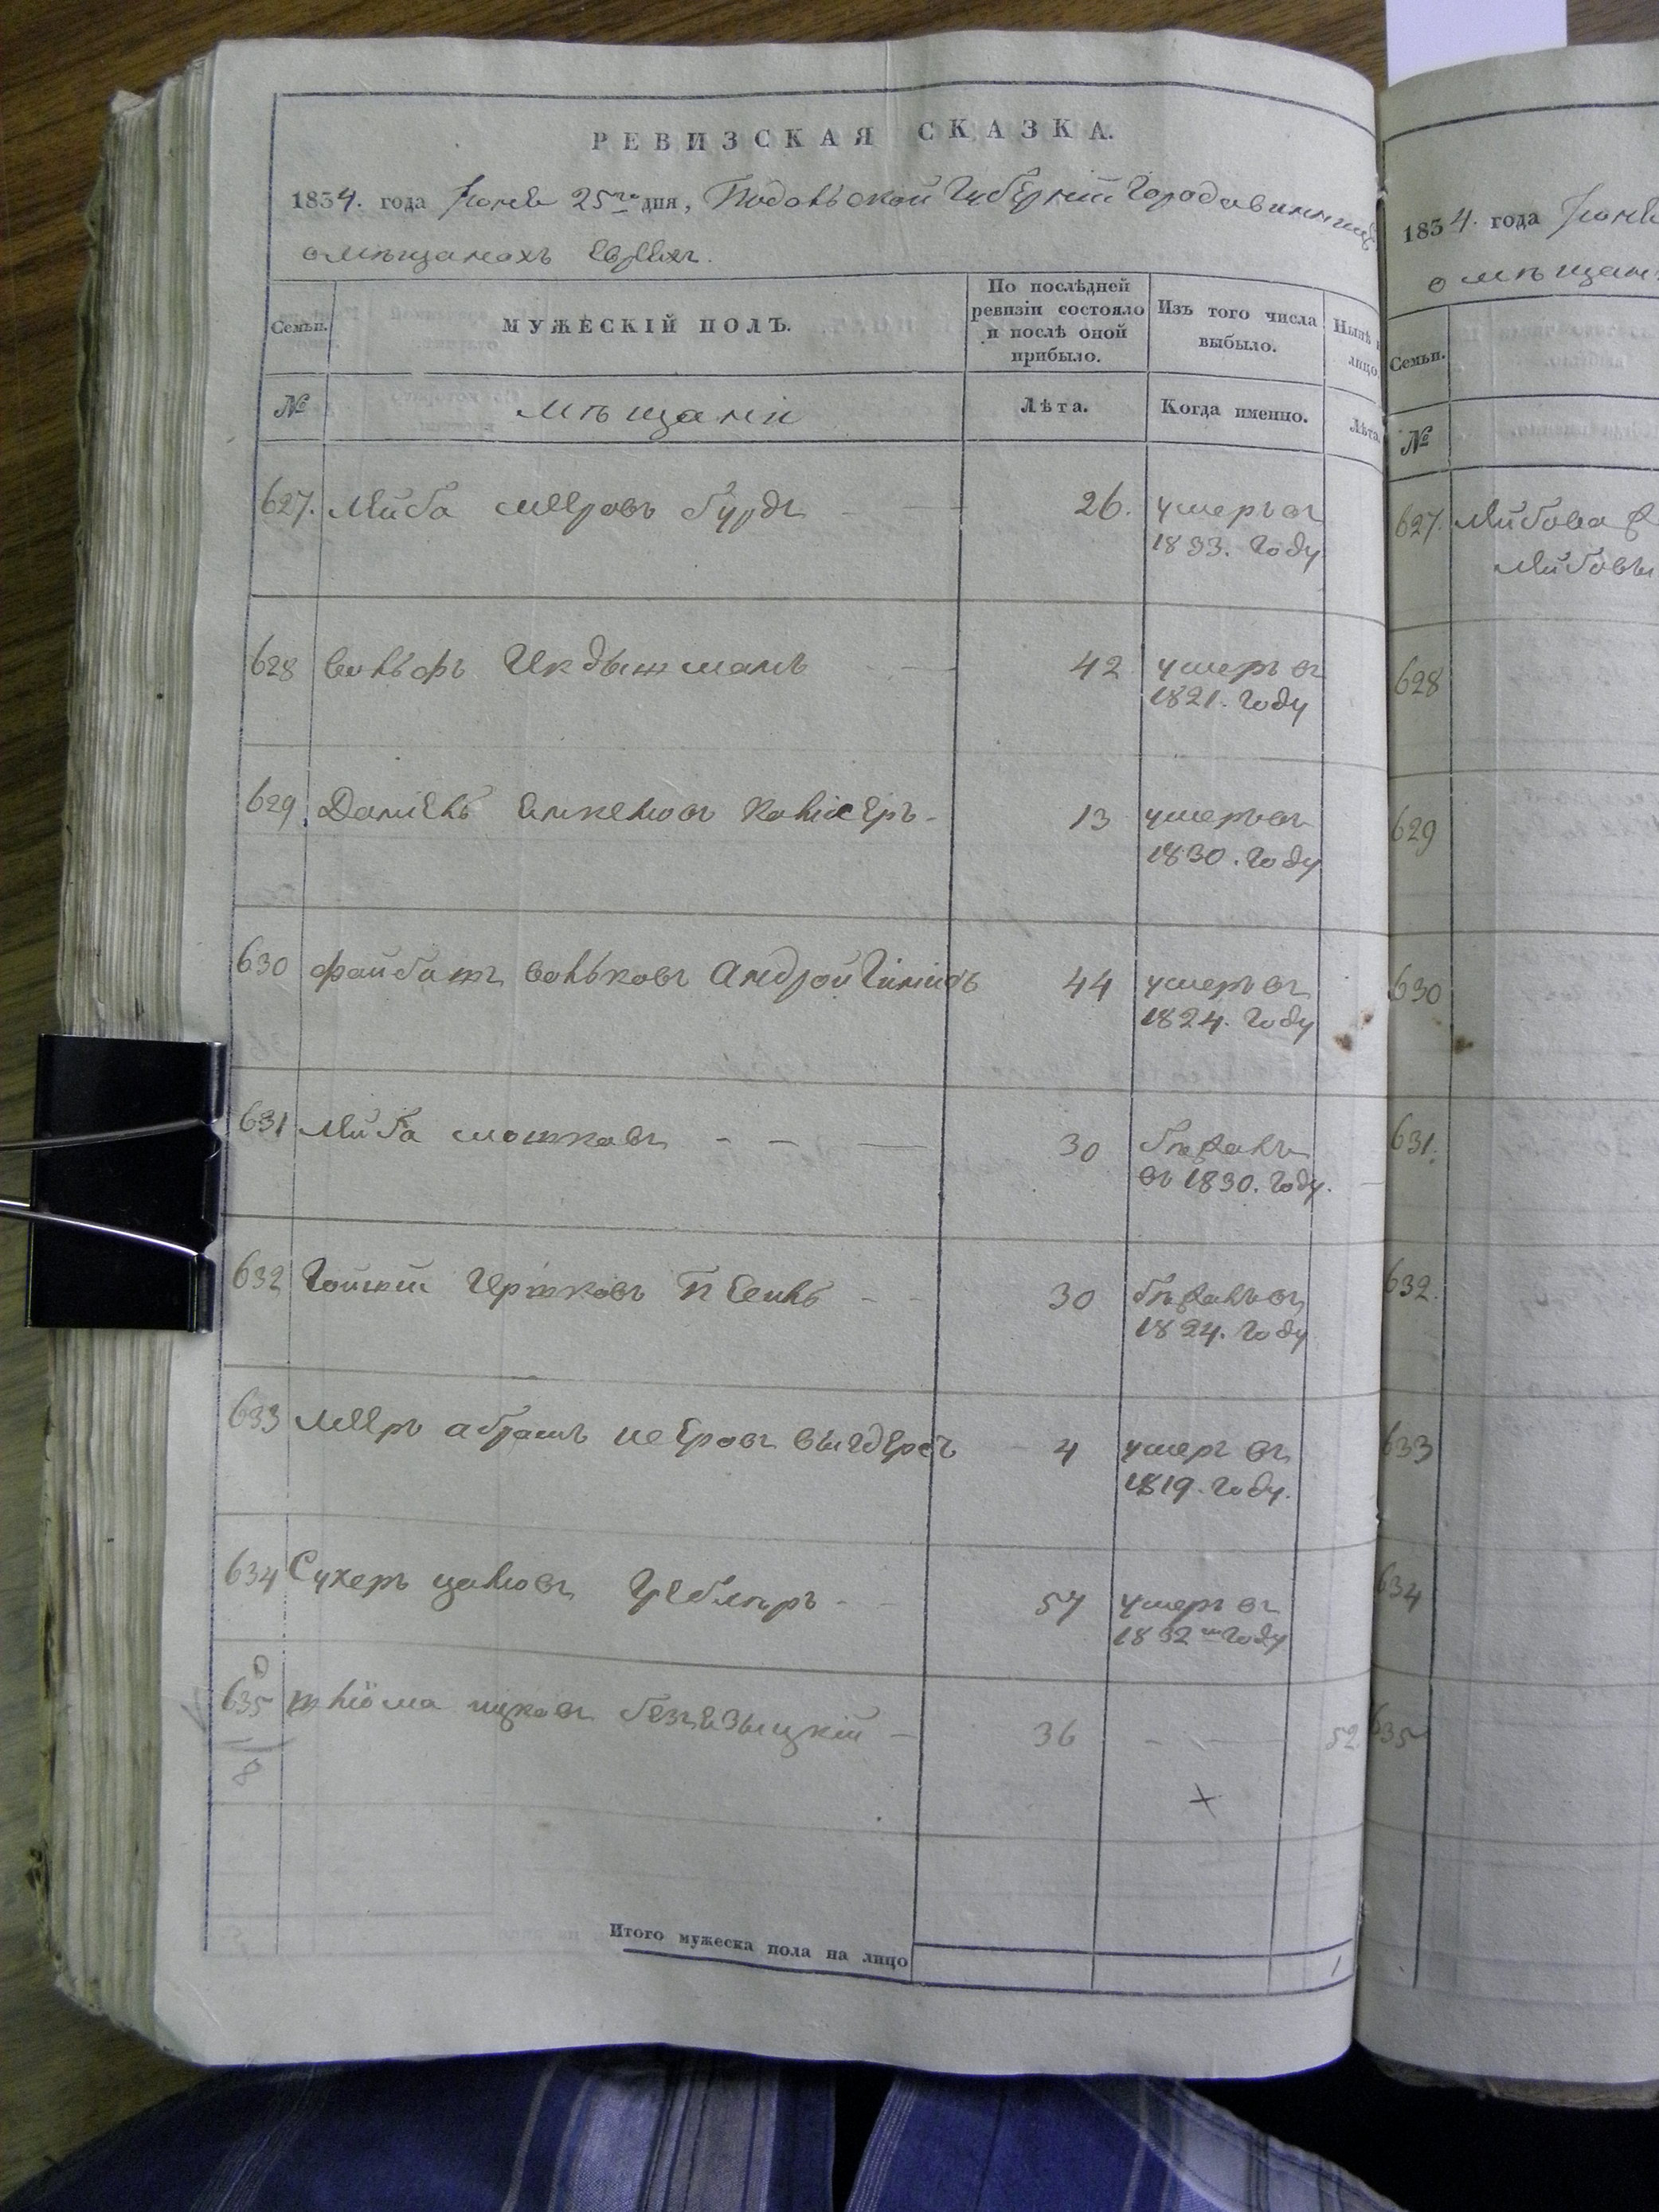 РЕВИЗСКАЯ СКАЗКА.
1834. года Іюня 25го дня, Подольской Губерніи Города винницы
о мѣщанахъ Евреяхъ.
Семьи.
МУЖЕСКІЙ ПОЛЪ.
По послѣдней ревизіи состояло и послѣ оной прибыло.
Изъ того числа выбыло.
Нынѣ
лицо
№
мѣщани
Лѣта.
Когда именно.
Лѣта
627. Лейба меировъ 26. умеръ въ
1833. году
628 вольфъ 42 умеръ въ
1821. году
629 Даніель 13 умеръ въ
1830. году
630 вольковъ 44 умеръ въ
1824. году
631 Лейба мошковъ 30 бѣжалъ
въ 1830. году.
632 30 бѣжалъ въ
1824. году
633 меиръ абрамъ 4 умеръ въ
1819. году.
634 Сухеръ 57 умеръ въ
1832 году
635 шліома ицковъ 36 52
8
Итого мужеска пола на лицо 1
1834. года Іюня
о мѣщан
Семьи.
№
627. Лейбова
Лейбовы
628
629
630
631.
632.
633
634
635